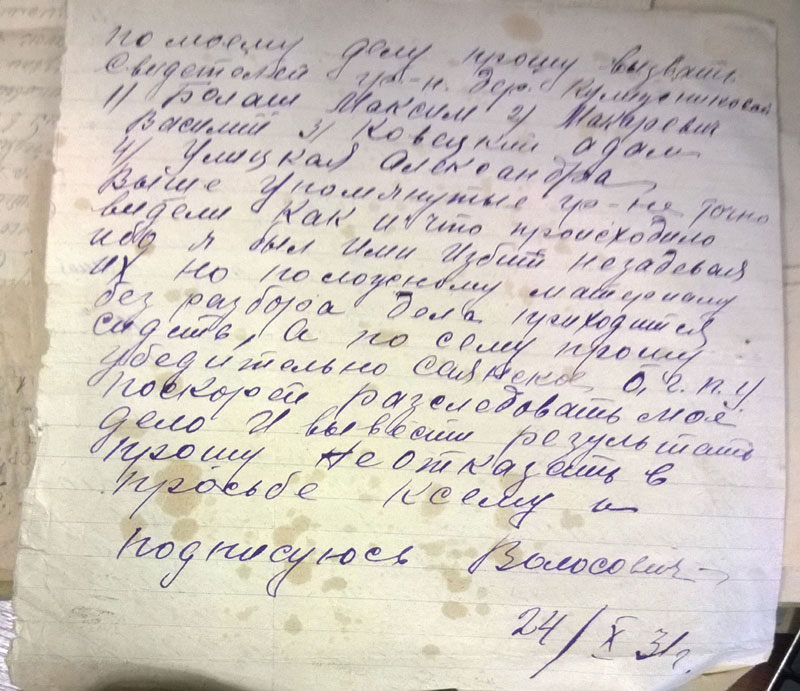 по моему делу прошу вызвать
свидетелей гр-н. дер.
1) Болаш Максим 2) Макаревич
Василий 3) Ковецкий Адам
4) Улицкая Александра
Выше упомянутые гр-не точно
видели как и что происходило
ибо я был ими избит незадевая
их но по ложному материалу
без разбора дела приходится
сидеть, А по сему прошу
убедительно О.Г.П.У
поскорей разследовать моё
дело и вывести результат
прошу не отказать в
просьбе ксему и
подписуюсь Волосович
24/X 31г.